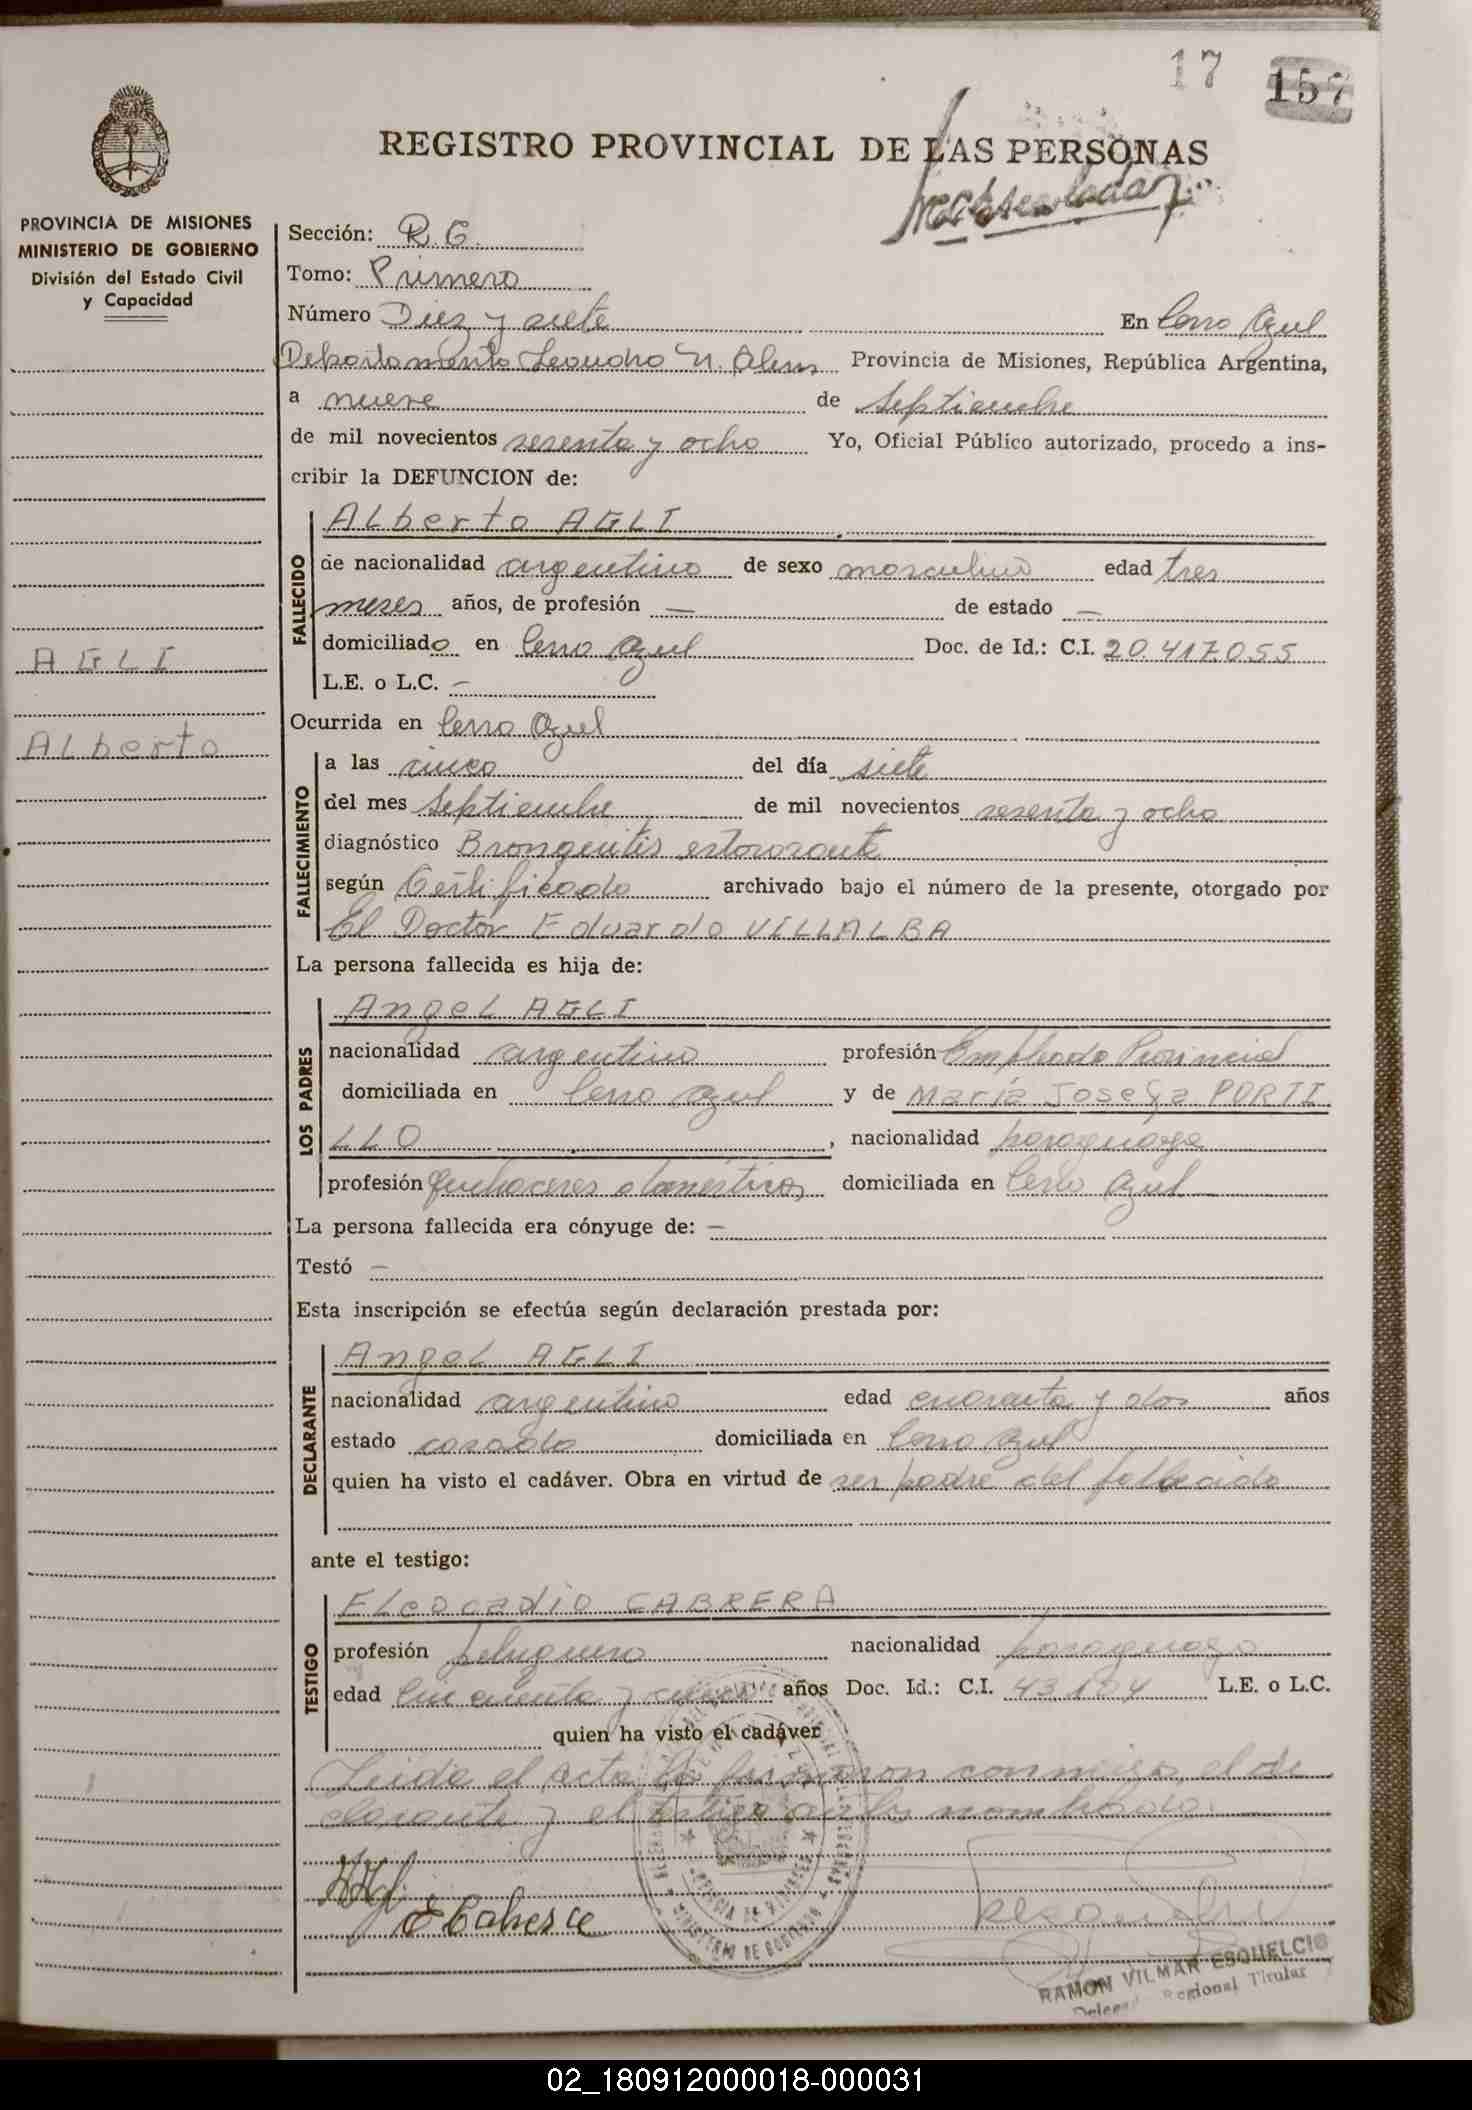 17 157
REGISTRO PROVINCIAL DE LAS PERSONAS
PROVINCIA DE MISIONES
MINISTERIO DE GOBIERNO
División del Estado Civil
y Capacidad
AGLI
Alberto
Sección: R.G.
Tomo: Primero
Número Diez y siete En Cerro Azul
Departamento Leandro N. Alem Provincia de Misiones, República Argentina,
a nueve de Septiembre
de mil novecientos sesenta y ocho Yo, Oficial Público autorizado, procedo a ins-
cribir la DEFUNCION de:
FALLECIDO
Alberto AGLI
de nacionalidad argentino de sexo masculino edad tres
meses años, de profesión — de estado —
domiciliado en Cerro Azul Doc. de Id.: C.I. 20.417.055
L.E. o L.C. —
Ocurrida en Cerro Azul
FALLECIMIENTO
a las cinco del día siete
del mes Septiembre de mil novecientos sesenta y ocho
diagnóstico
según Certificado archivado bajo el número de la presente, otorgado por
El Doctor Eduardo VILLALBA
La persona fallecida es hija de:
LOS PADRES
Angel AGLI
nacionalidad argentino profesión Empleado Provincial
domiciliada en Cerro Azul y de María Josefa PORTI
LLO, nacionalidad paraguaya
profesión Quehaceres domésticos domiciliada en Cerro Azul
La persona fallecida era cónyuge de: —
Testó —
Esta inscripción se efectúa según declaración prestada por:
DECLARANTE
Angel AGLI
nacionalidad argentino edad cuarenta y dos años
estado casado domiciliada en Cerro Azul
quien ha visto el cadáver. Obra en virtud de ser padre del fallecido
ante el testigo:
TESTIGO
Eleocadio CABRERA
profesión peluquero nacionalidad paraguayo
edad Cincuenta y años Doc. Id.: C.I. 43.184 L.E. o L.C.
quien ha visto el cadáver
Leida el acta la firmaron conmigo, el de
clarante y el testigo nombrado.
E Cabrera
MINISTERIO DE GOBIERNO
RAMON VILMAR ESQUELCIO
Regional Titular
02_180912000018-000031